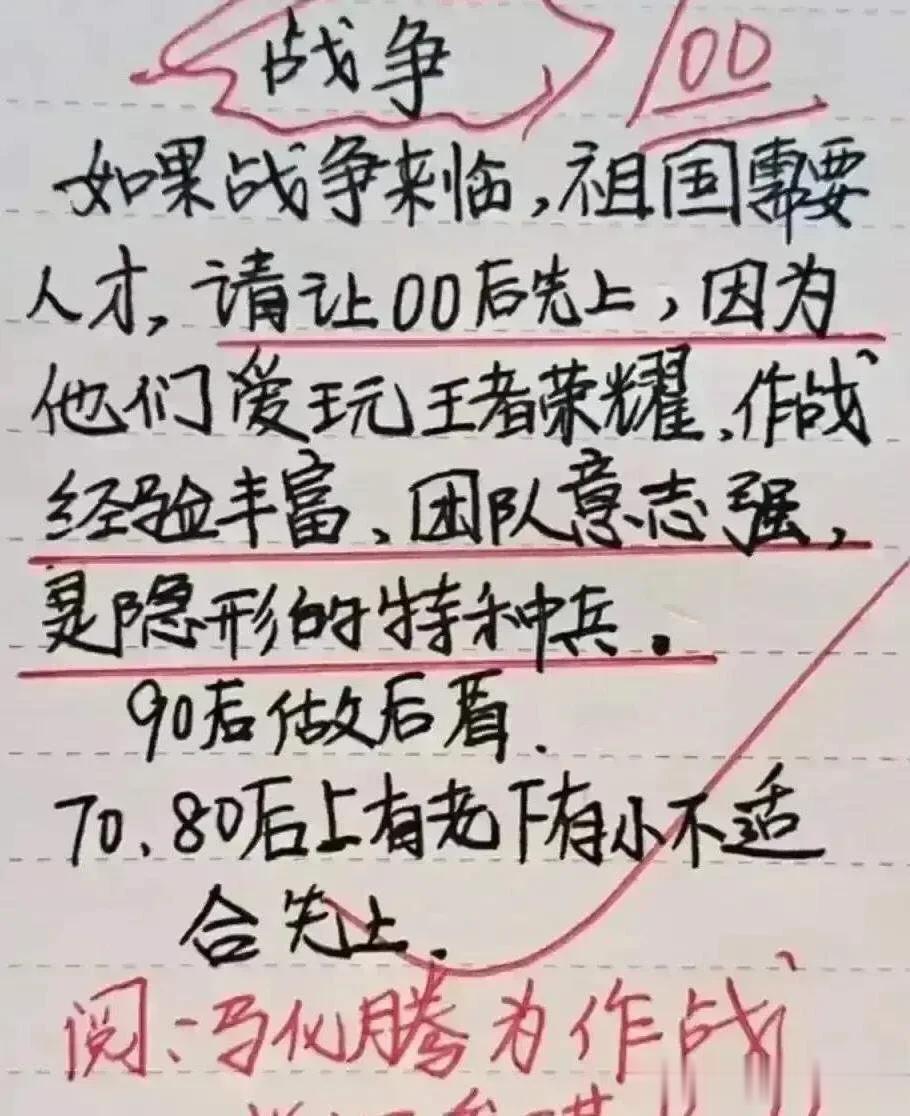 战争 100
如果战争来临,祖国需要
人才,请让00后先上,因为
他们爱玩王者荣耀、作战
经验丰富、团队意志强,
是隐形的特种兵。
90后做后盾.
70、80后上有老下有小不适
合先上.
阅:马化腾为作战